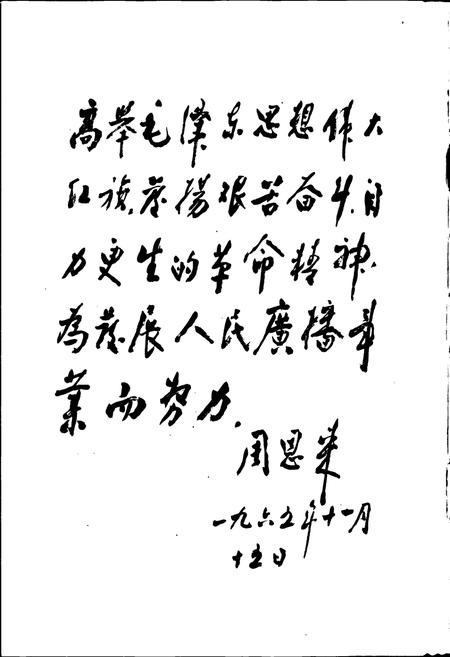 高举毛澤东思想伟大
红旗,發揚艰苦奋斗,自
力更生的革命精神,
為發展人民廣播事
業而努力.
周恩来
一九六五年十一月
十五日